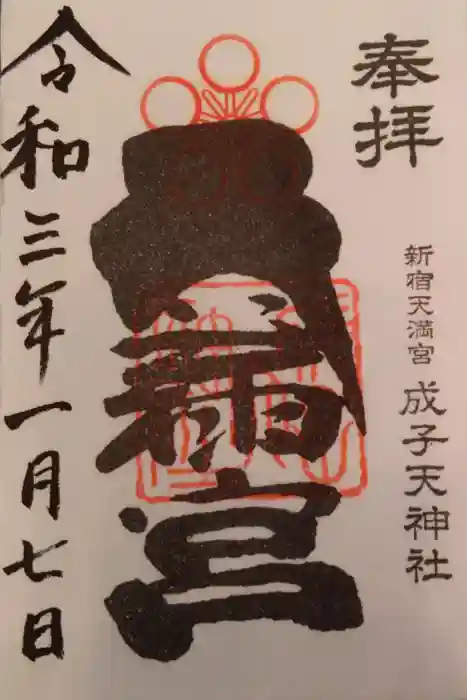 奉拝
新宿天満宮 成子天神社
天満宮
令和三年一月七日